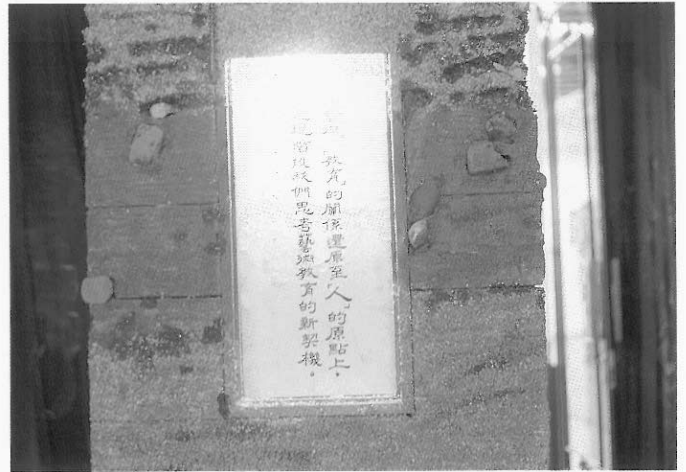 「教育」的關係還原至「人」的原點上，
階段我們思考藝術教育的新契機。